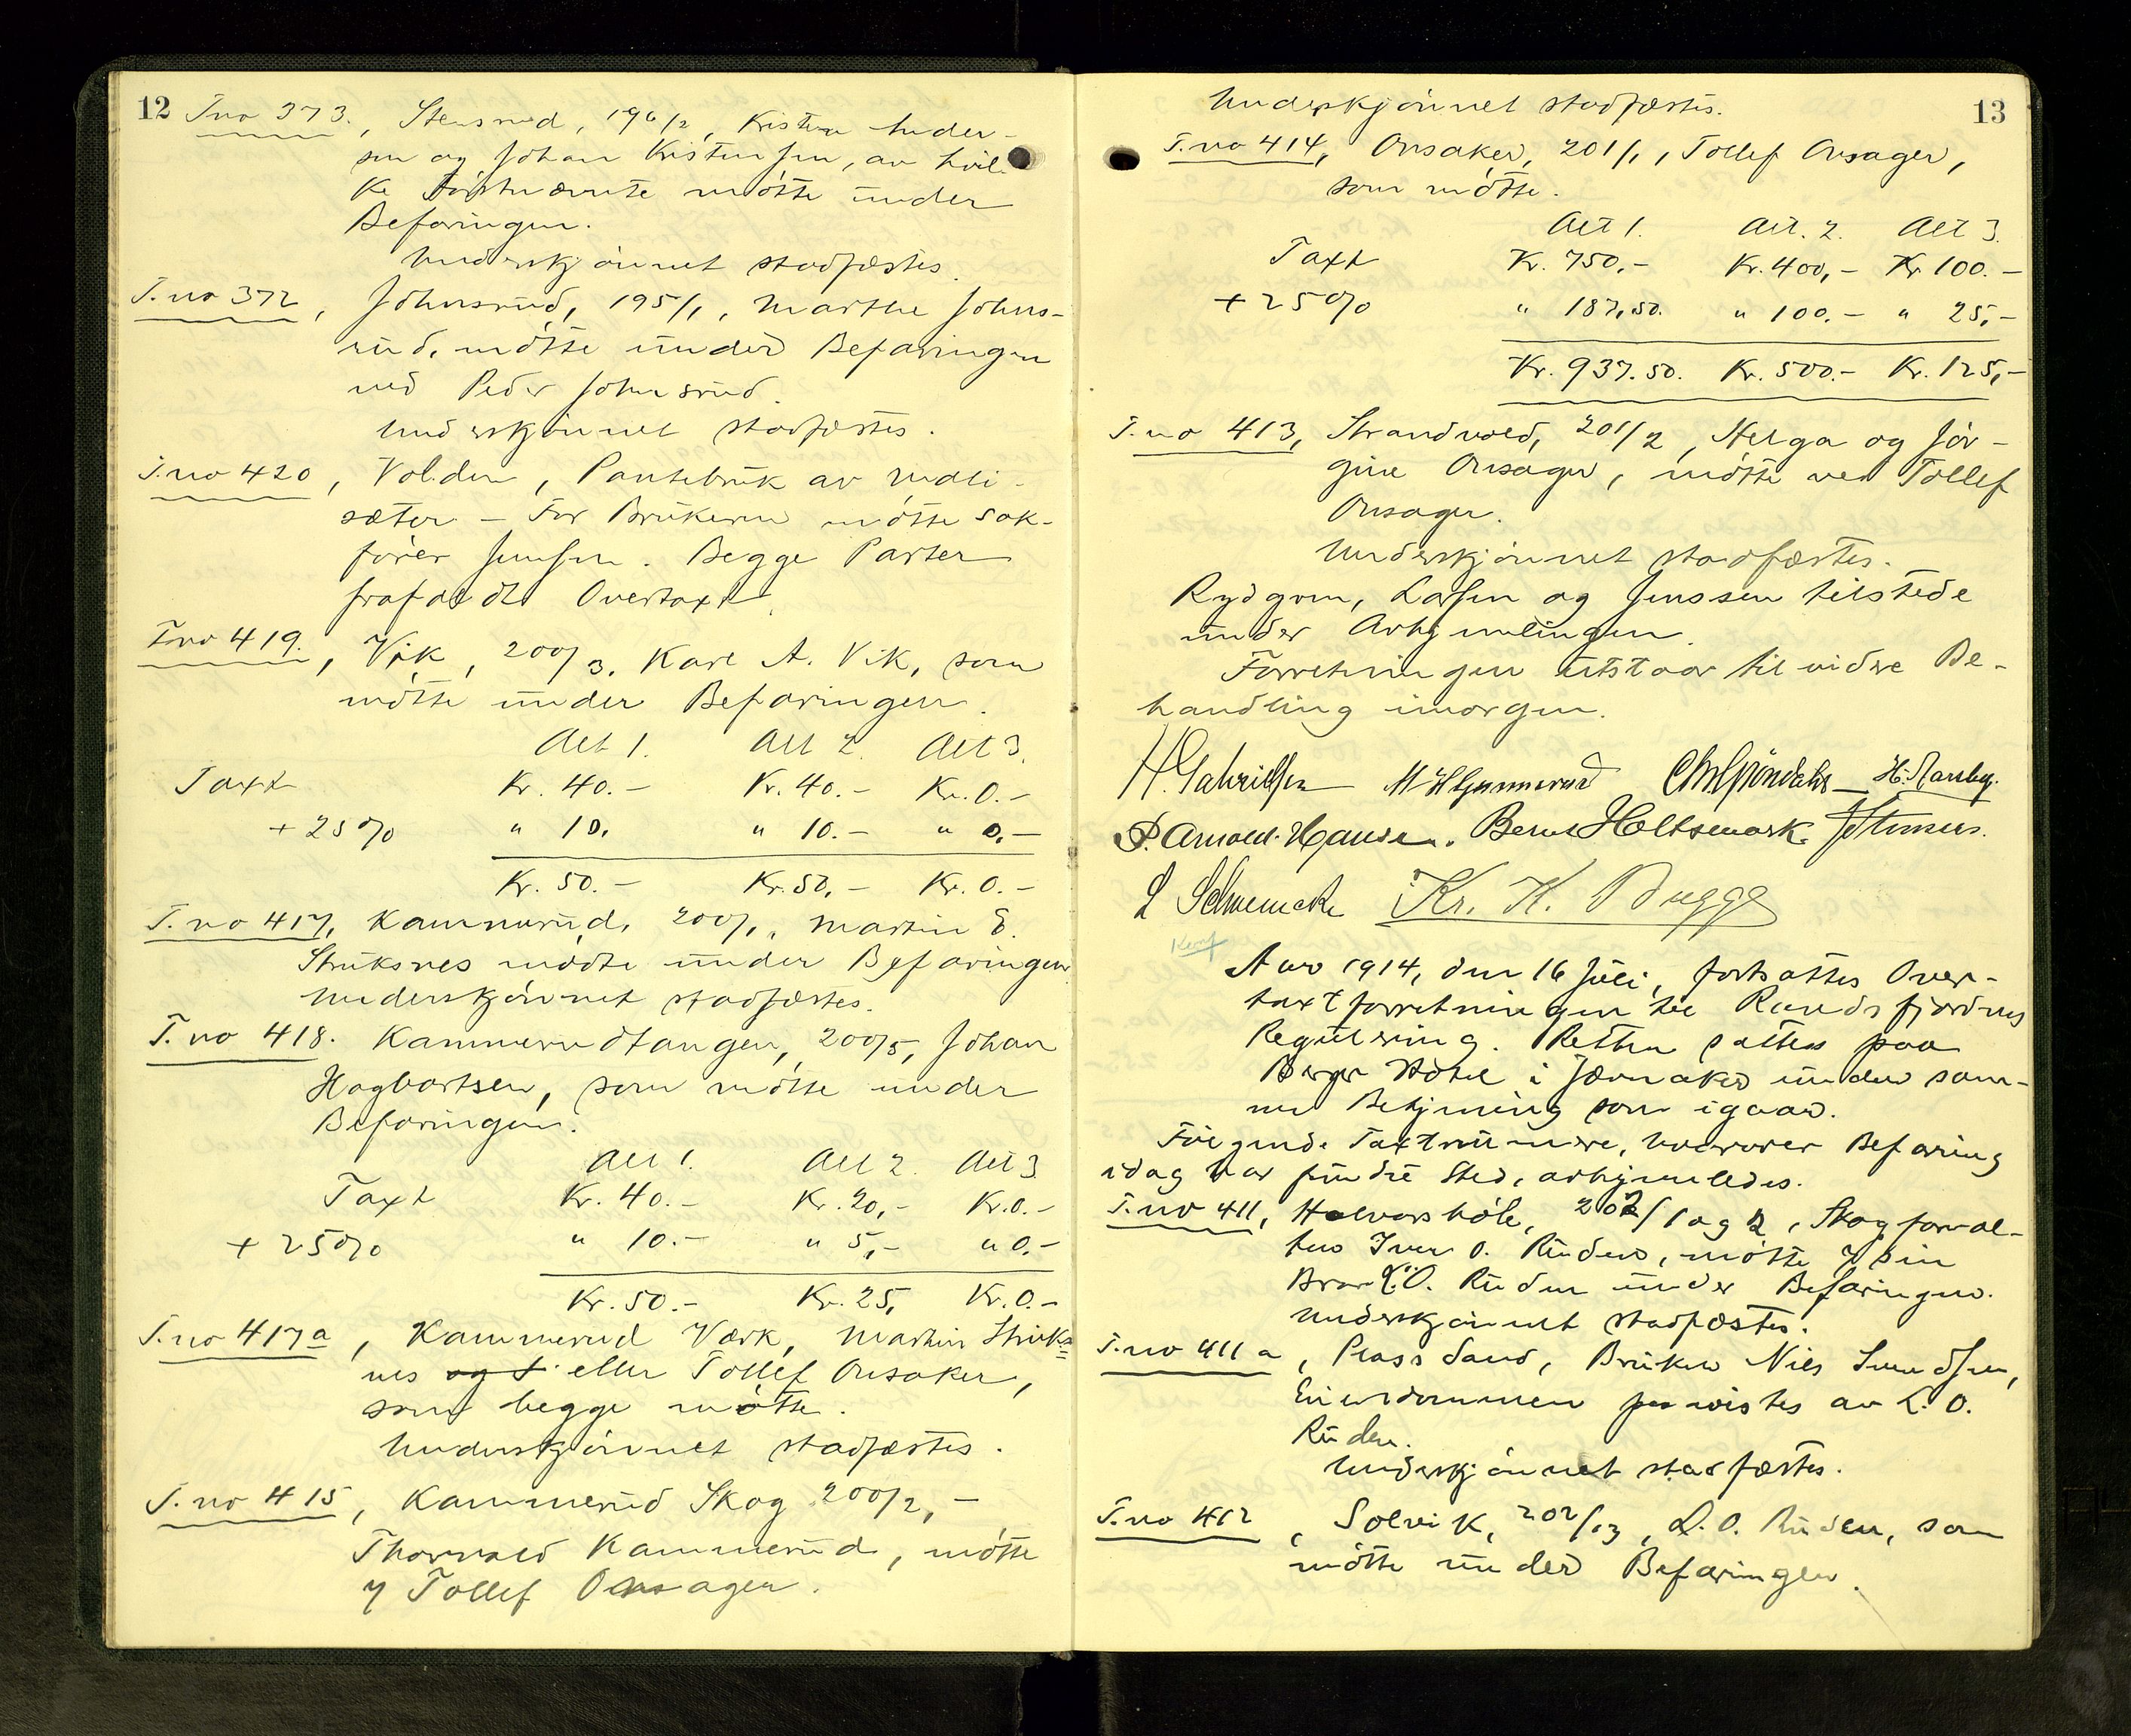 12
T.no 373. , Stensrud, 196/2, Kristen Ander-
sen og Johan Kristensen, av hvil-
ke Førstnævnte møtte under
Befaringen.
Underskjønnet stadfæstes.
T.no 372 , Johnsrud, 195/1, Marthe Johns-
rud, møtte under Befaringen
ved Peder Johnsrud.
Underskjønnet stadfæstes.
T.no 420 , Volden, Pantebruk av
sæter – For Brukeren møtte Sak-
fører Jensen. Begge Parter
frafaldt Overtaxt.
T.no 419. , Vik, 200/3, Karl A. Vik, som
møtte under Befaringen.
Alt 1. Alt 2. Alt 3.
Taxt Kr. 40.- Kr. 40.- Kr. 0.-
+ 25% " 10. " 10.- " 0.-
Kr. 50.- Kr. 50,- Kr. 0.-
T.no 417, Kammerud, 200/1, Martin E.
Struksnes mødte under Befaringen
Underskjønnet stadfæstes.
T. no 418. Kammerudtangen, 200/5, Johan
Hagbartsen, som møtte under
Befaringen.
Alt 1. Alt 2. Alt 3
Taxt Kr. 40.- Kr. 20,- Kr. 0.-
+ 25% " 10.- " 5,- " 0.-
Kr. 50.- Kr. 25, Kr. 0.-
T.no 417a , Kammerud Værk, Martin Struks=
nes og T eller Tollef Onsaker,
som begge møtte.
Underskjønnet stadfæstes.
T.no 415 , Kammerud Skog 200/2, –
Thorvald Kammerud, møtte
v Tollef Onsager.
13
Underskjønnet stadfæstes.
T.no 414, Onsaker, 201/1, Tollef Onsager,
som møtte.
Alt 1. Alt. 2. Alt 3.
Taxt Kr. 750,- Kr. 400,- Kr 100.-
+ 25% " 187,50. " 100.- " 25,-
Kr. 937.50. Kr. 500.- Kr. 125,-
T.no 413, Strandvold, 201/2, Helga og Jør-
gine Onsager, møtte ved Tollef
Onsager.
Underskjønnet stadfæstes.
Rydgren, Larsen og Jenssen tilstede
under Avhjemlingen.
Forretningen utstaar til videre Be-
handling imorgen.
H. Gabrielsen M H Gunnerud
P. Arnold Hansen. Bernt Holtsmark.
Kr. K. Bugge
Aar 1914, den 16 Juli, fortsattes Over-
taxtforretningen til Randsfjordens
Regulering. Retten sattes paa
Berger Hotel i Jevnaker under sam-
me Betjening som igaar.
Følgende Taxtnumere, hvorover Befaring
idag har fundet Sted, avhjemledes.
T.no 411, Halvorsbøle, 202/1 og 2, Skogforval-
ter Iver O. Ruden, møtte v sin
Bror L.O. Ruden under Befaringen.
Underskjønnet stadfæstes.
T.no 411 a , Plass Sand, Bruker Nils Svendsen,
Eiendommen paavistes av L.O.
Ruden.
Underskjønnet stadfæstes.
T.no 412 , Solvik, 202/13, L.O. Ruden, som
møtte under Befaringen.